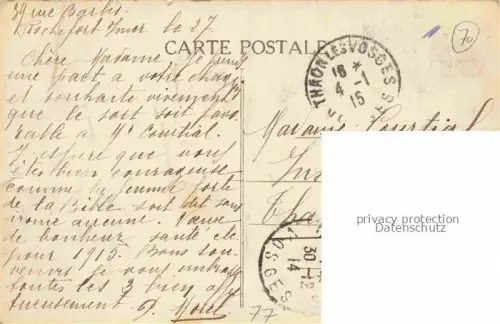 39 rue Barbès
Rochefort s/mer le 27
CARTE POSTALE
Chère Madame, Je prends
une part a votre chagrin
et souhaite vivement
que le sort soit favo
rable à Mr Courtial.
J'espère que vous
êtes bien courageuse
comme la femme forte
de la Bible soit dit sans
ironie aucune. Vœux
de bonheur santé etc
pour 1915. Bons sou
venirs je vous embrasse
toutes les 3 bien affec
tueusement
Madame Courtial
Tha
THAON LES VOSGES
16 *
4 - 1
15
VOSGES
30 - 12
14
77
70
privacy protection
oldthing.de